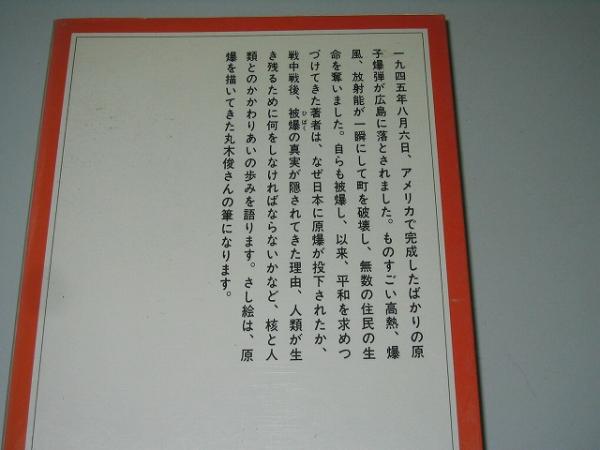 一九四五年八月六日、アメリカで完成したばかりの原
子爆弾が広島に落とされました。ものすごい高熱、爆
風、放射能が一瞬にして町を破壊し、無数の住民の生
命を奪いました。自らも被爆し、以来、平和を求めつ
づけてきた著者は、なぜ日本に原爆が投下されたか、
戦中戦後、被爆の真実が隠されてきた理由、人類が生
ひばく
き残るために何をしなければならないかなど、核と人
類とのかかわりあいの歩みを語ります。さし絵は、原
爆を描いてきた丸木俊さんの筆になります。